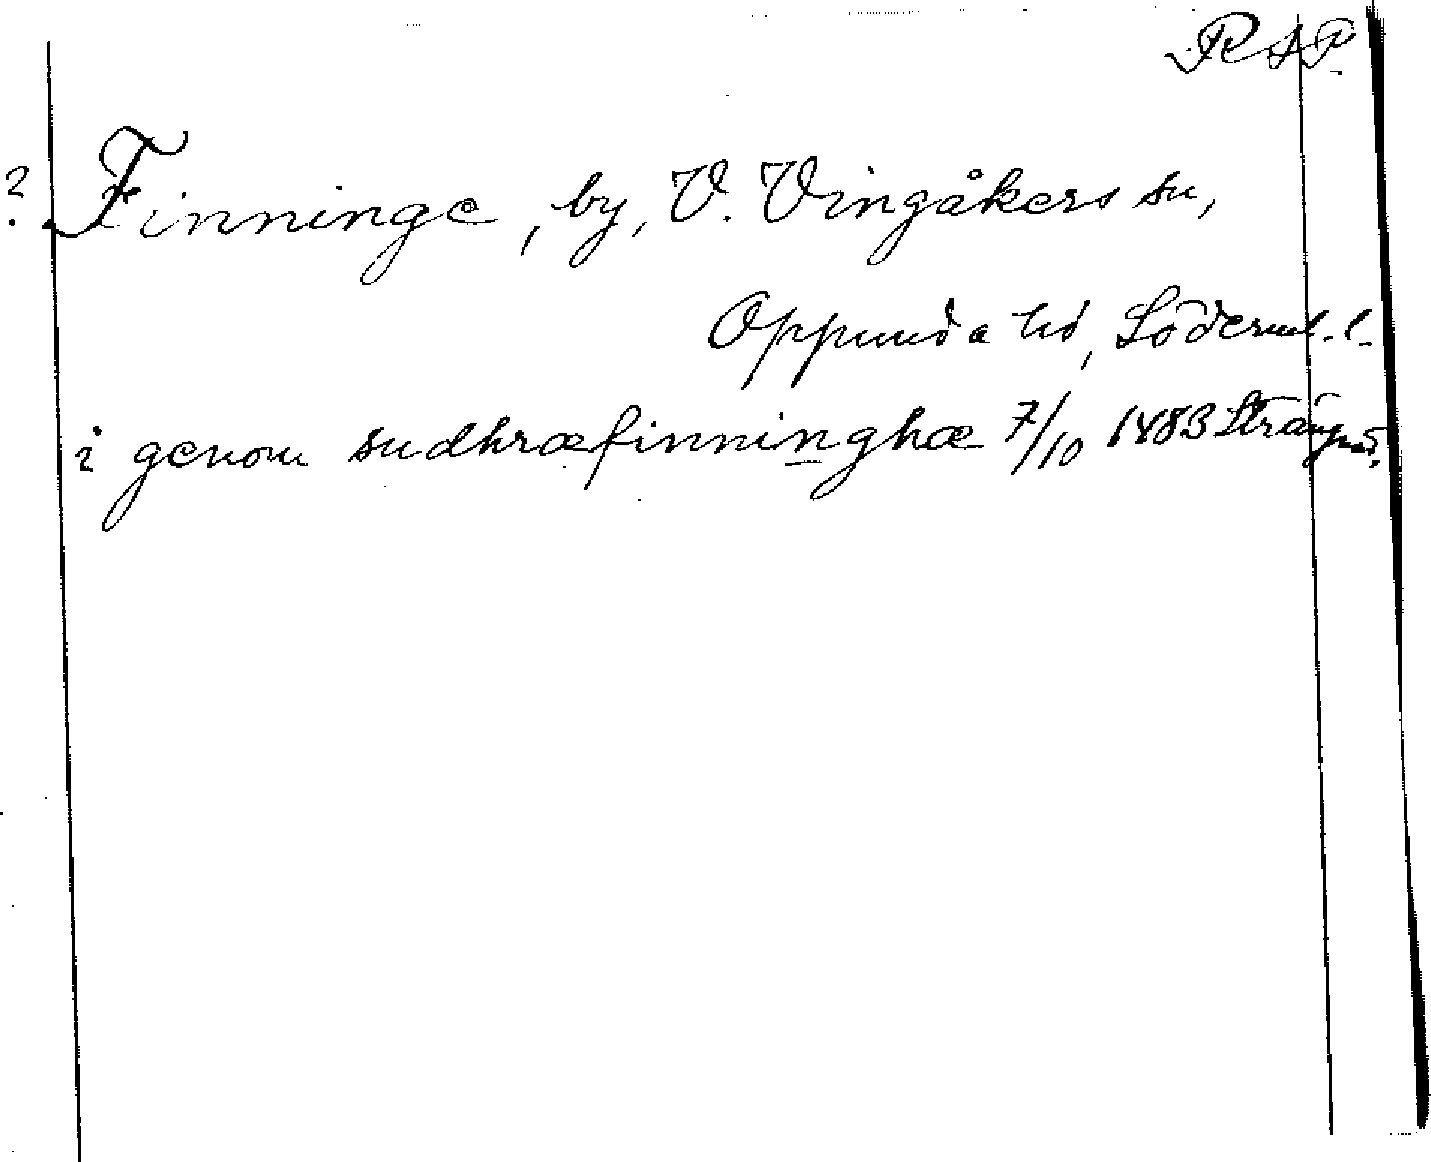 RAP.
? Finninge, by, V. Vingåkers sn,
Oppunda hd, Söderml. l.
i genom sudhræfinninghæ 7/10 1483 Strängnäs.